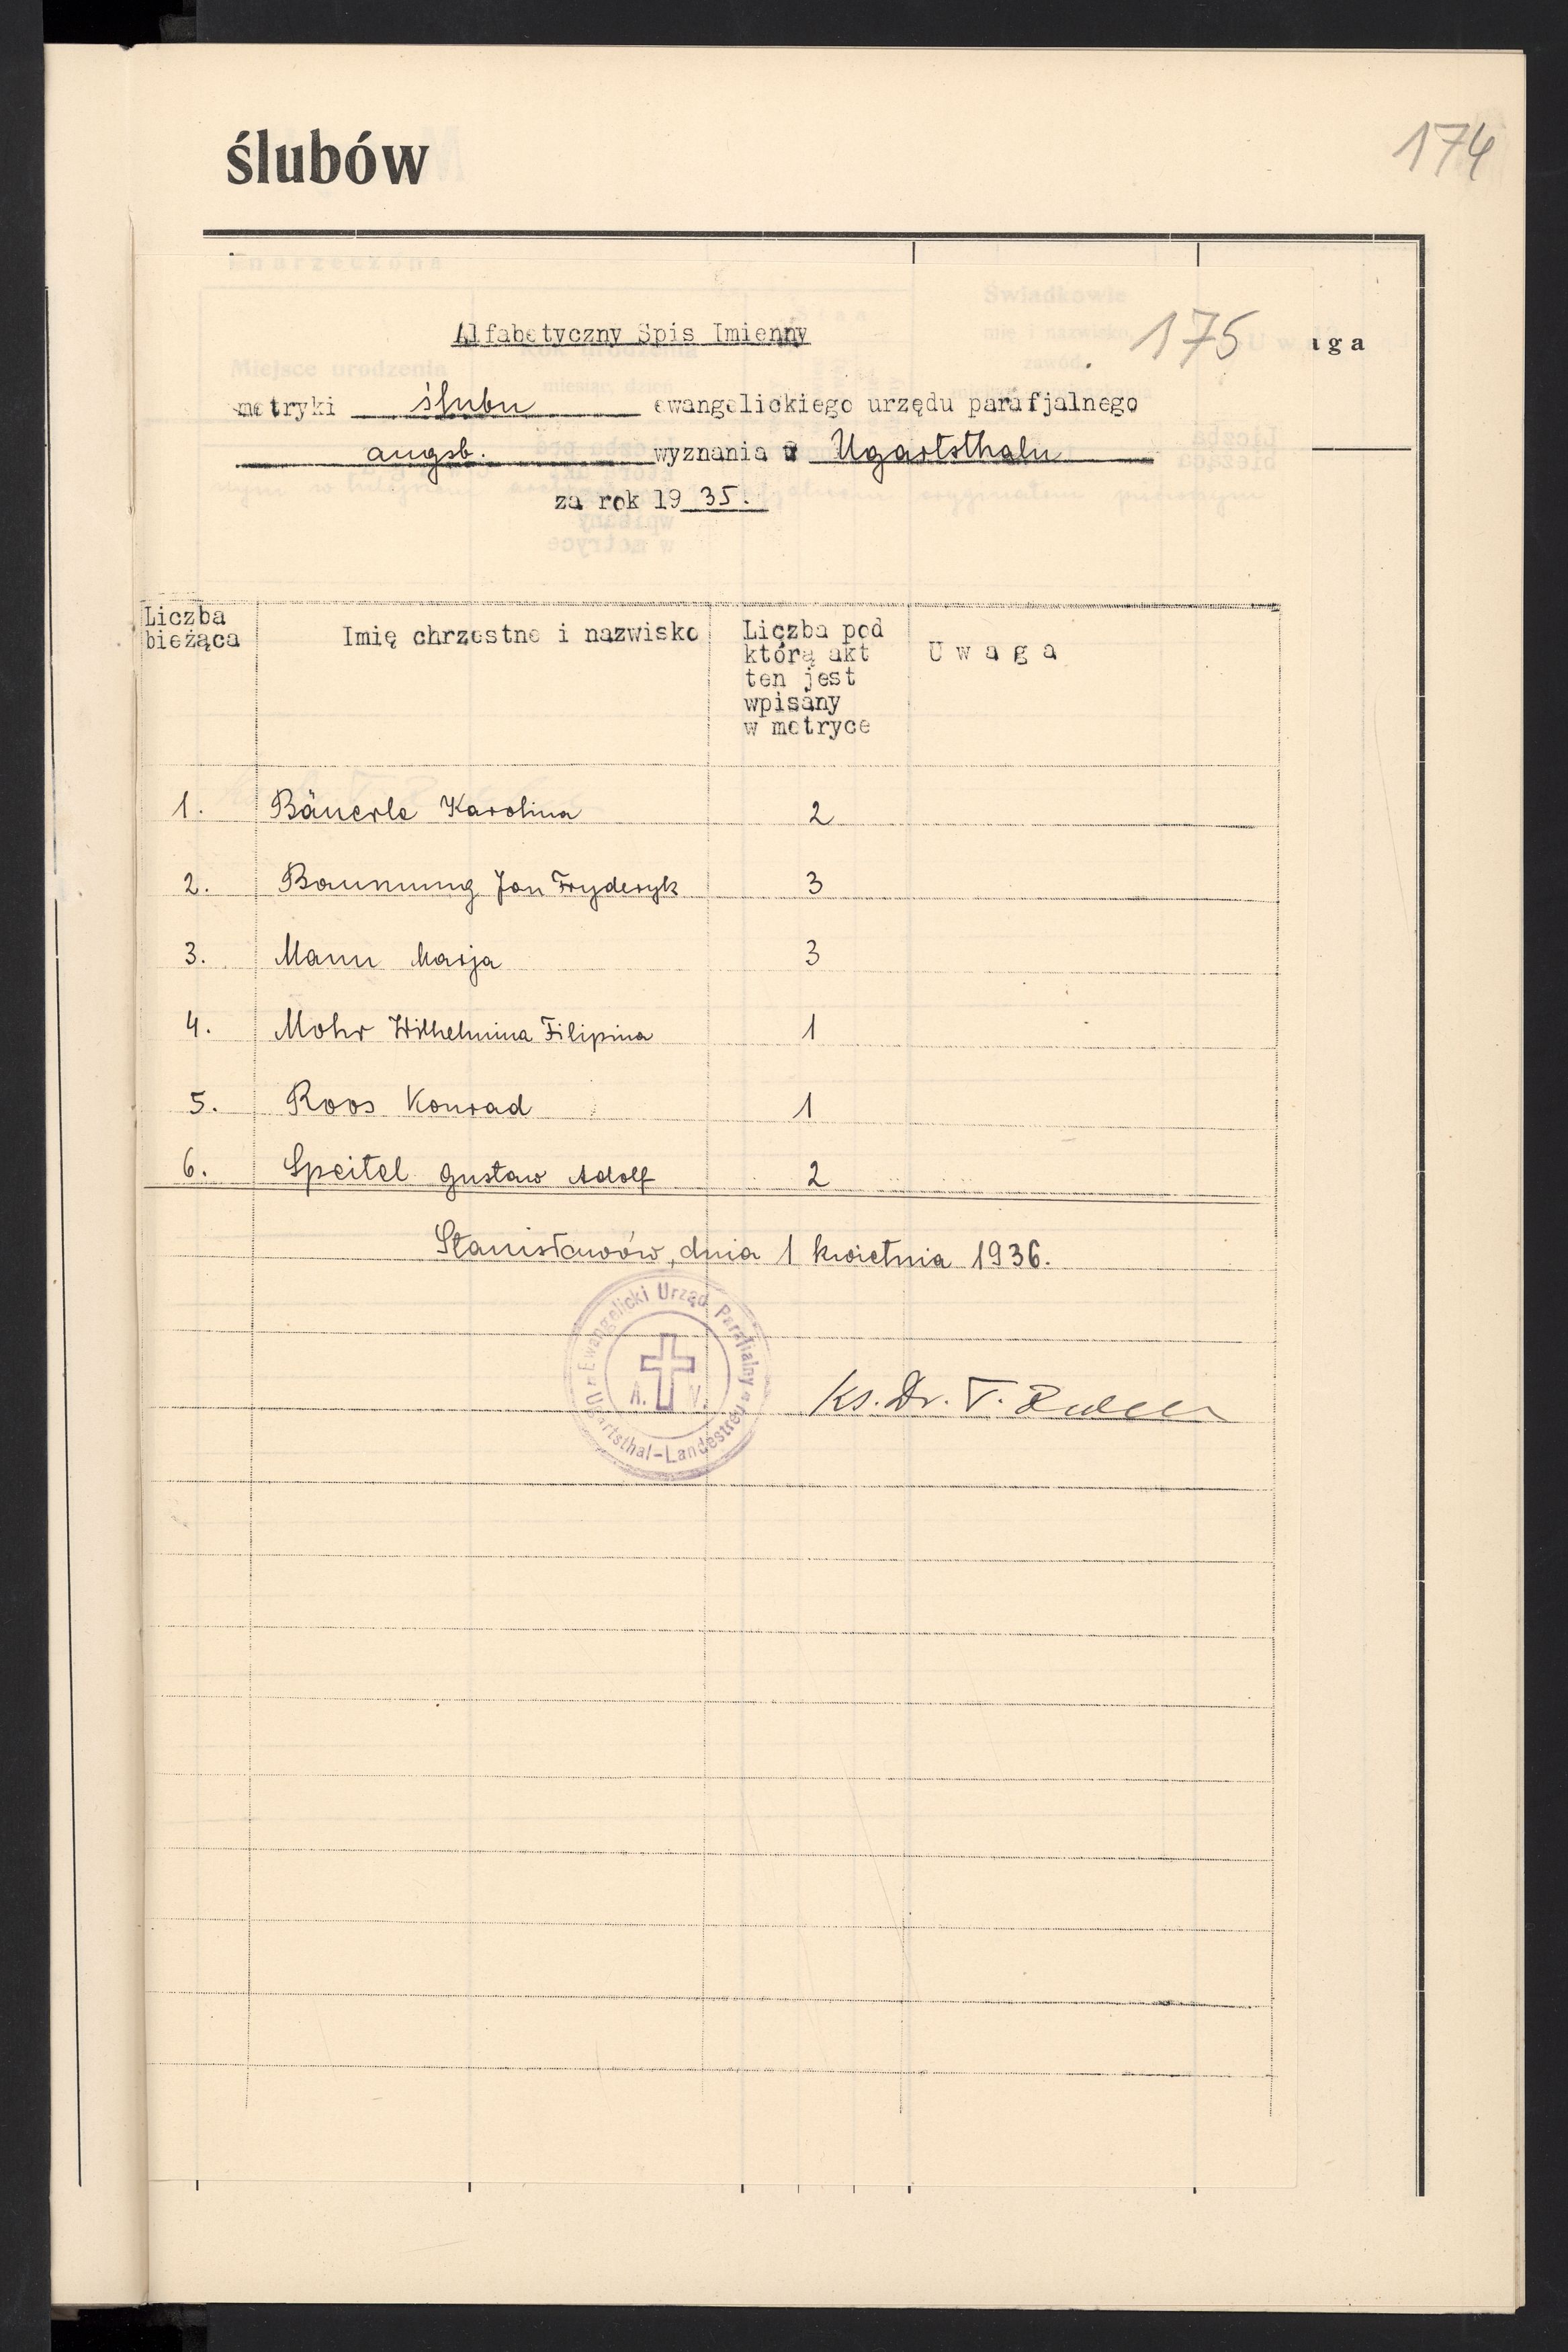 ślubów
174
Alfabetyczny Spis Imienny
175
aga
metryki ślubu ewangelickiego urzędu parafjalnego
augsb. wyznania w Ugartsthalu
za rok 19 35.
Liczba
bieżąca
Imię chrzestne i nazwisko
Liczba pod
którą akt
ten jest
wpisany
w metryce
Uwaga
1. Bäuerle Karolina 2
2. Baumung Jan Fryderyk 3
3. Mann Marja 3
4. Mohr Wilhelmina Filipina 1
5. Roos Konrad 1
6. Speitel Gustaw Adolf 2
Stanisławów, dnia 1 kwietnia 1936.
Ewangelicki Urząd Parafialny
A. V.
Ugartsthal-Landestreu
Ks. Dr. T.